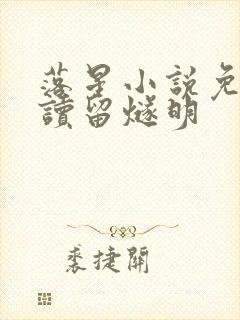 落星小説免
讀留燧明
裘捷開